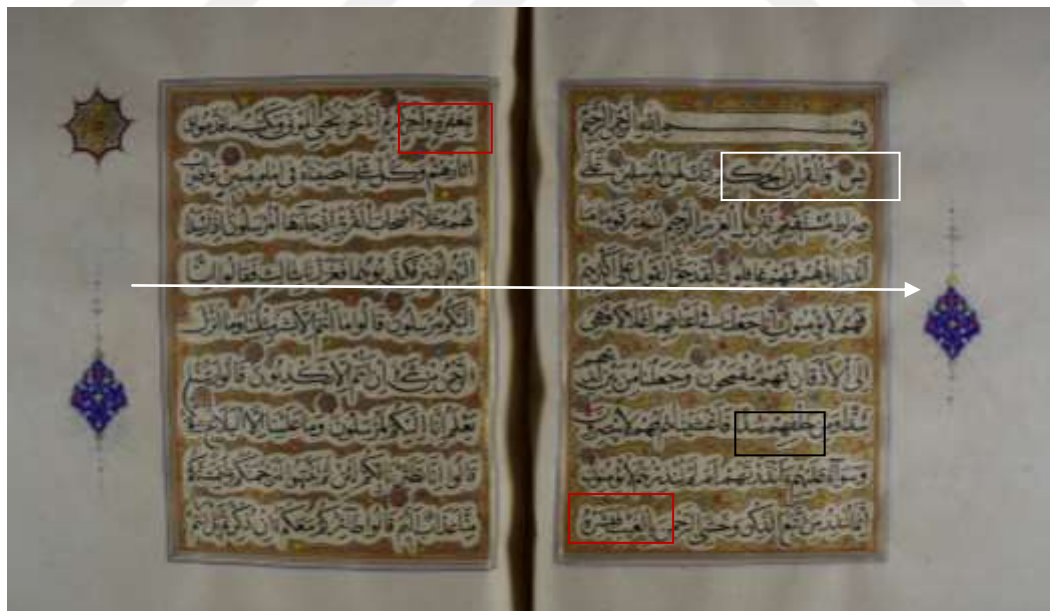 بسم الله الرحمن الرحيم
يس والقران الحكيم انك لمن المرسلين على
صراط مستقيم تنزيل العزيز الرحيم لتنذر قوما ما
انذر اباؤهم فهم غافلون لقد حق القول على اكثرهم
فهم لا يؤمنون انا جعلنا في اعناقهم اغلالا فهي
الى الاذقان فهم مقمحون وجعلنا من بين ايديهم
سدا ومن خلفهم سدا فاغشيناهم فهم لا يبصرون
وسواء عليهم ءانذرتهم ام لم تنذرهم لا يؤمنون
انما تنذر من اتبع الذكر وخشي الرحمن بالغيب فبشره
بمغفرة واجر كريم انا نحن نحيي الموتى ونكتب ما قدموا و
اثارهم وكل شيء احصيناه في امام مبين واضرب
لهم مثلا اصحاب القرية اذ جاءها المرسلون اذ ارسلنا
اليهم اثنين فكذبوهما فعززنا بثالث فقالوا انا
اليكم مرسلون قالوا ما انتم الا بشر مثلنا وما انزل
الرحمن من شيء ان انتم الا تكذبون قالوا ربنا
يعلم انا اليكم لمرسلون وما علينا الا البلاغ المبين
قالوا انا تطيرنا بكم لئن لم تنتهوا لنرجمنكم وليمسنكم
منا عذاب اليم قالوا طائركم معكم ائن ذكرتم بل انتم